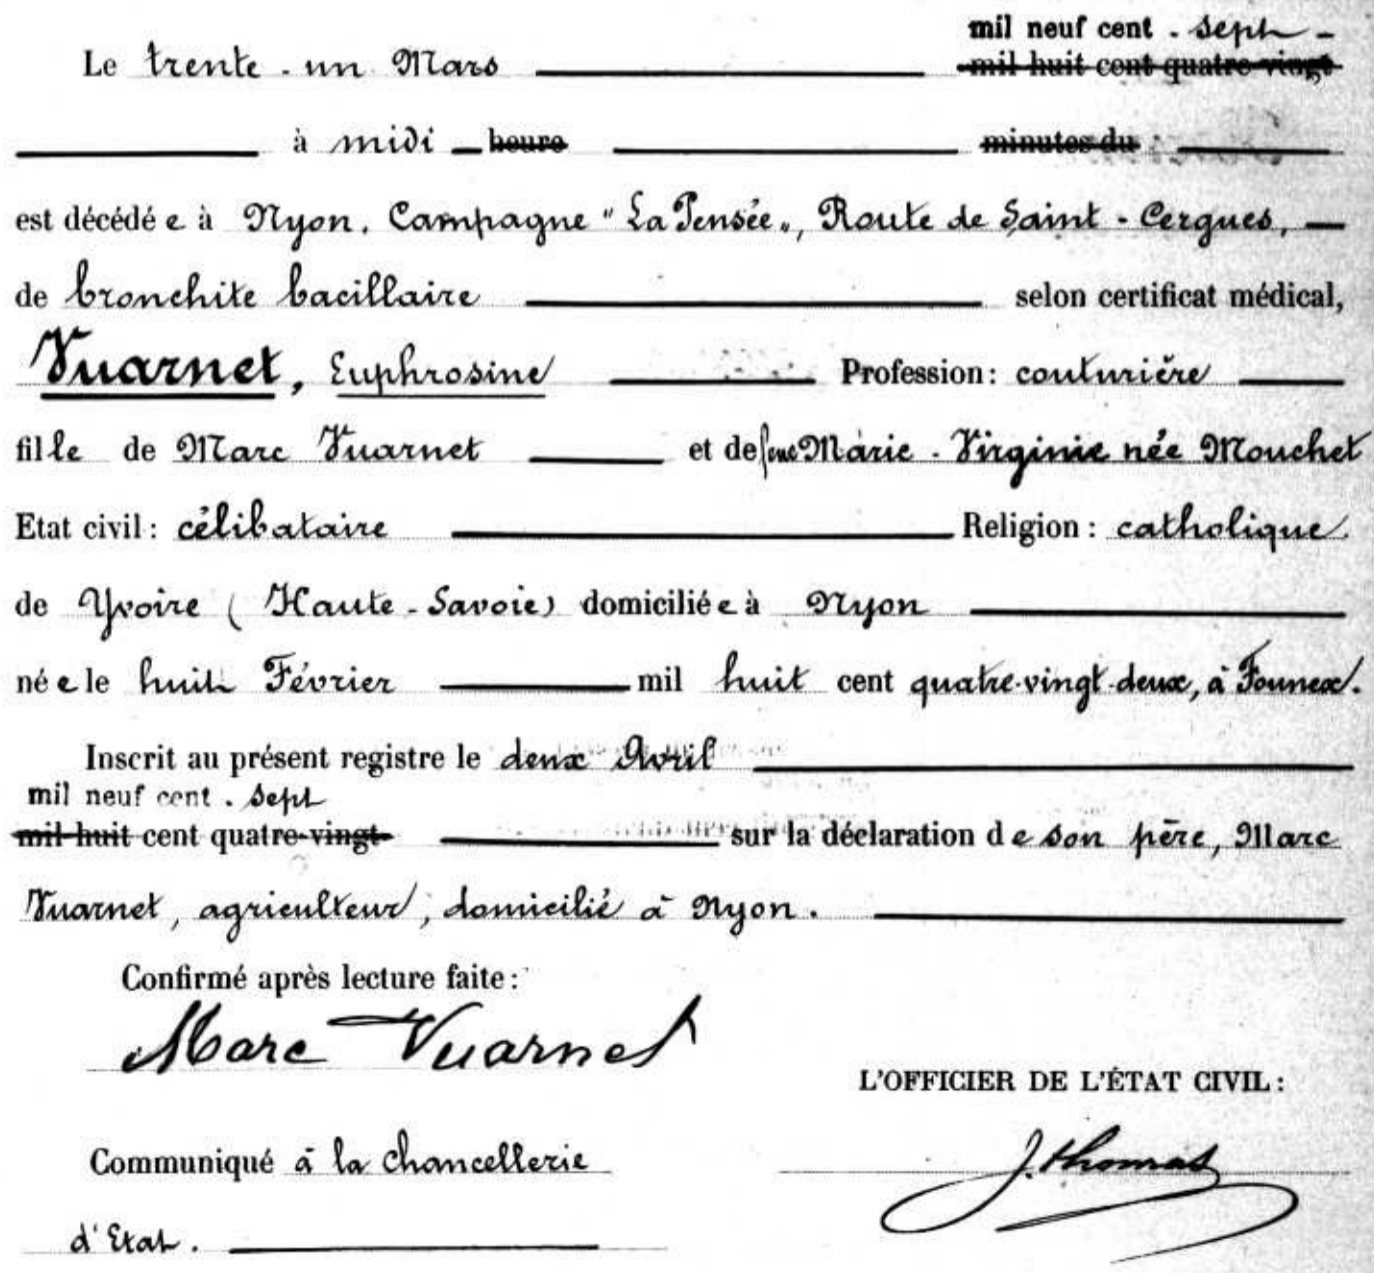 mil neuf cent - sept -
Le trente-un Mars mil huit cent quatre-vingt
à midi heure minutes du
est décédée à Nyon, Campagne "La Pensée", Route de Saint-Cergues,
de bronchite bacillaire selon certificat médical,
Vuarnet, Euphrosine Profession: couturière
fille de Marc Vuarnet et de feue Marie-Virginie née Mouchet
Etat civil: célibataire Religion: catholique
de Yvoire (Haute-Savoie) domiciliée à Nyon
née le huit Février mil huit cent quatre-vingt-deux, à Founex.
Inscrit au présent registre le deux Avril
mil neuf cent - sept
mil huit cent quatre-vingt sur la déclaration de son père, Marc
Vuarnet, agriculteur, domicilié à Nyon.
Confirmé après lecture faite:
Marc Vuarnet
L'OFFICIER DE L'ÉTAT CIVIL:
Communiqué à la chancellerie J. Thomas
d'Etat.